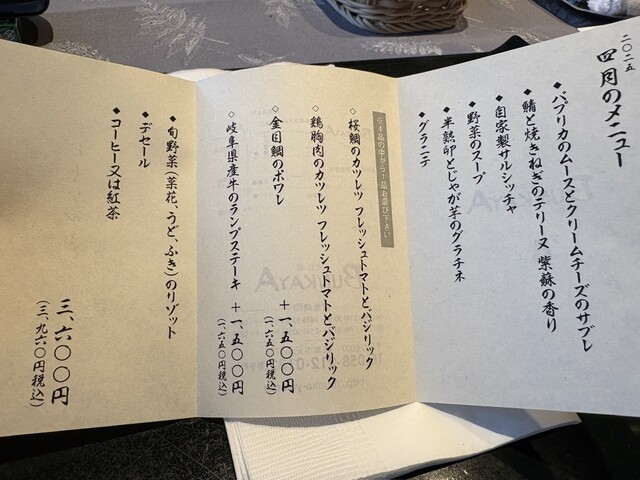 二〇二五
四月のメニュー
◆パプリカのムースとクリームチーズのサブレ
◆鯖と焼きねぎのテリーヌ 紫蘇の香り
◆自家製サルシッチャ
◆野菜のスープ
◆半熟卵とじゃが芋のグラチネ
◆グラニテ
※4品の中から1品お選び下さい
◇桜鯛のカツレツ フレッシュトマトとバジリック
◇鶏胸肉のカツレツ フレッシュトマトとバジリック
◇金目鯛のポワレ ＋一、五〇〇円
（一、六五〇円税込）
◇岐阜県産牛のランプステーキ ＋一、五〇〇円
（一、六五〇円税込）
◆旬野菜（菜花、うど、ふき）のリゾット
◆デセール
◆コーヒー又は紅茶
三、六〇〇円
（三、九六〇円税込）